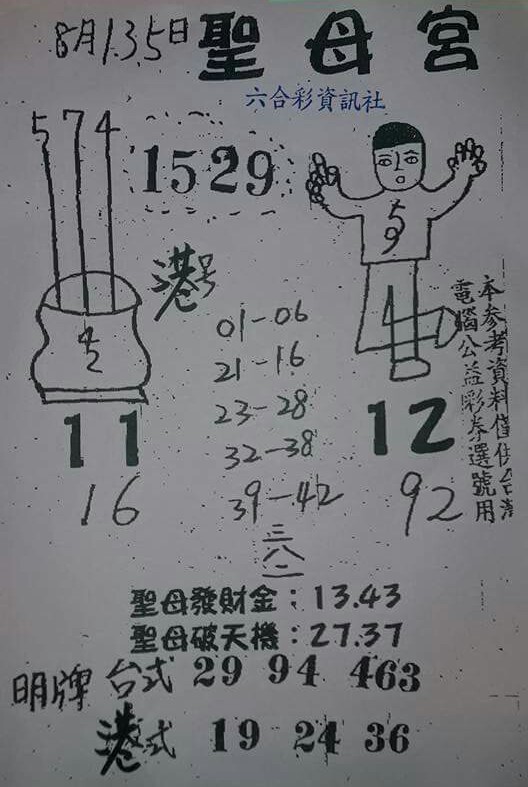 8月1.3.5日 聖母宮
六合彩資訊社
5 7 4
1529
港号
01-06
21-16
23-28
32-38
39-42
三八一
11
16
12
92
本参考資料僅供台灣
電腦公益彩券選號用
聖母發財金：13.43
聖母破天機：27.37
明牌 台式 29 94 463
港式 19 24 36